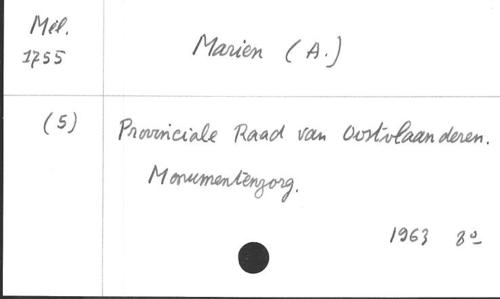 Mél.
1755
Marien (A.)
(5)
Provinciale Raad van Oostvlaanderen.
Monumentenzorg.
1963 8º